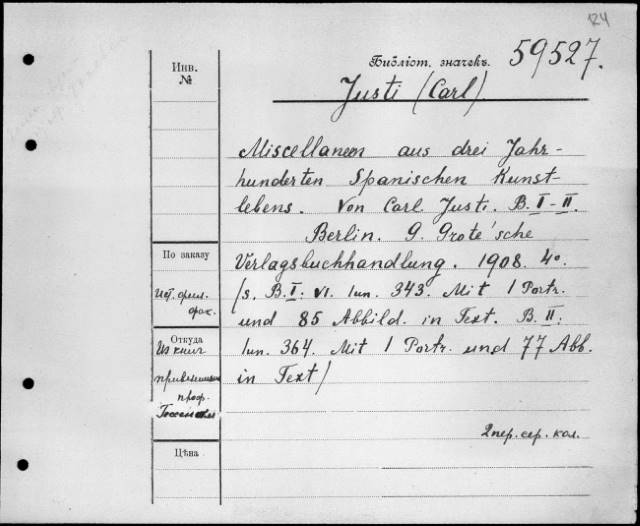 124
Инв.
№
Библіот. значекъ. 59527.
Justi (Carl).
Miscellaneen aus drei Jahr-
hunderten Spanischen Kunst-
lebens. Von Carl Justi. B. I-II.
Berlin. G. Grote'sche
Verlagsbuchhandlung. 1908. 4°.
/s. B. I. VI. 1un. 343. Mit 1 Portr.
und 85 Abbild. in Text. B. II.
1un. 364. Mit 1 Portr. und 77 Abb.
in Text/
2 пер. сер. кол.
По заказу
Ист. фил.
фак.
Откуда
Из книг
проф.
Цѣна